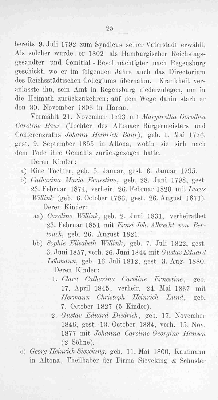 25
bereits 9. Juli 1792 zum Syndicus seiner Vaterstadt erwählt.
Als solcher wurde er 1802 als Hamburgischer Reichsgesandter
und Comitial-
geschickt, wo er im folgenden Jahre auch das Directorium
des Reichsstädtischen Collegiums übernahm. Krankheit
anlasste ihn, sein Amt in Regensburg niederzulegen, um in
die Heimath zurückzukehren; auf dem Wege dahin starb er
den 30. November 1803 in Hanau.
Vermählt 21. November 1793 mit Margaretha Carolina
(Tochter des Altonaer Bürgermeisters und
Conferenzraths Johann Heinrich
gest. 9. September 1855 in Altona, wohin sie sich nach
dem Tode ihres Gemahls zurückgezogen hatte.
Deren Kinder:
a) Eine Tochter, geb. 5. Januar, gest. 6. Januar 1795.
b) Catharina Maria Ernestine, geb. 28. Juni 1796, gest.
Februar 1874, verheir. 26. Februar 1829 mit Lucas
Willink (geb. 6. October 1786, gest. 26. August 1871).
Deren Kinder:
aa) Carolina Willink, geb. 2. Juni 1831, verheirathet
Februar 1851 mit Ernst
geb. 26. August 1821.
bb) Sophie Elisabeth Willink, geb. 7. Juli 1822, gest.
Juni 1857, verh. 26. Juni 1844 mit Gustav Eduard
geb. 16. Juli 1812, gest. 3. Aug. 1880.
Deren Kinder:
1. Clara Catharina Caroline Ernestine, geb.
17. April 1845, verheir. 24. Mai 1867 mit
Hermann Christoph Heinrich
geb. 7. October 1827 (5 Kinder).
2. Gustav Eduard Diedrich, geb. 17. November
1846, gest. 18. October 1884, verh. 15. Nov.
1877 mit Johanna Caroline Georgine Hansen
(2 Söhne).
c) Georg Heinrich Sieveking, geb. 11. Mai 1800, Kaufmann
in Altona, Theilhaber der Firma Sieveking &